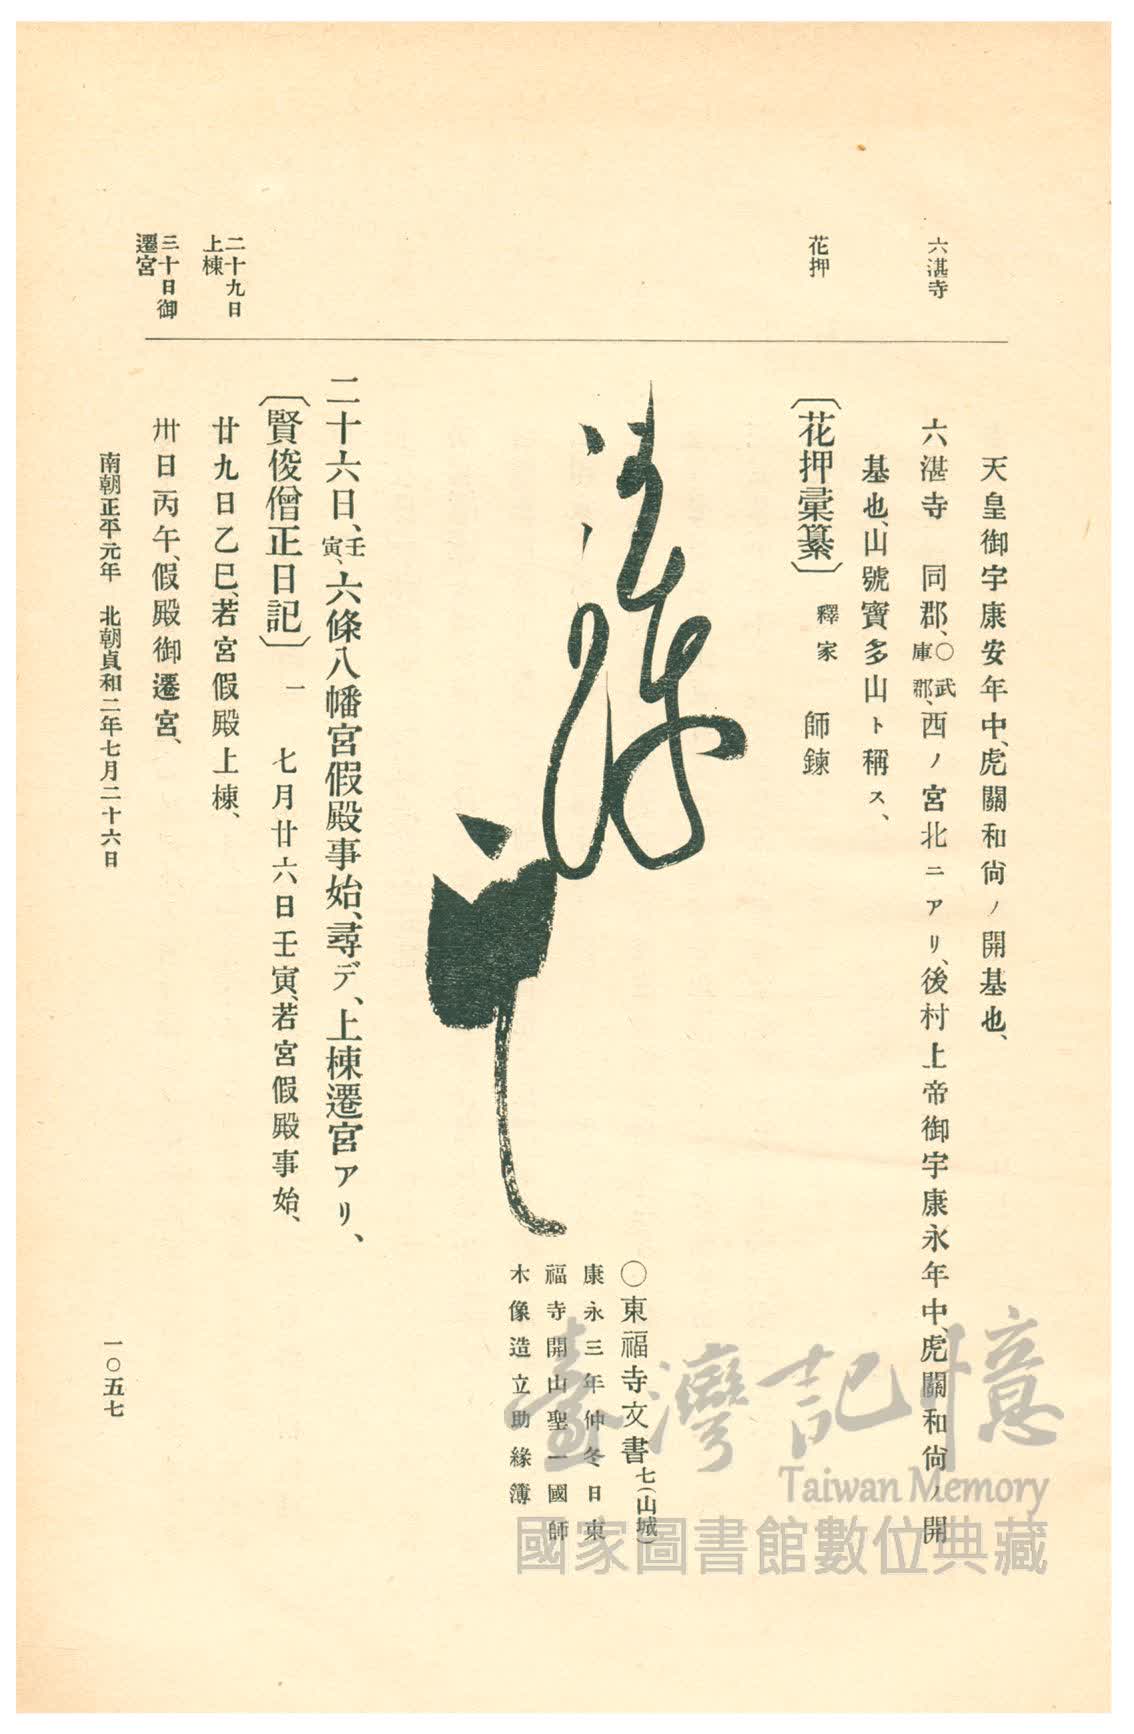 六湛寺
花押
二十九日
上棟
三十日御
遷宮
天皇御宇康安年中、虎關和尙ノ開基也、
六湛寺　同郡、〇武庫郡、西ノ宮北ニアリ、後村上帝御宇康永年中、虎關和尙ノ開
基也、山號寶多山ト稱ス、
〔花押彙纂〕　釋家　師鍊
〇東福寺文書七（山城）
康永三年仲冬日東
福寺開山聖一國師
木像造立助緣簿
二十六日、壬寅、六條八幡宮假殿事始、尋デ、上棟遷宮アリ、
〔賢俊僧正日記〕一　七月廿六日壬寅、若宮假殿事始、
廿九日乙巳、若宮假殿上棟、
卅日丙午、假殿御遷宮、
南朝正平元年　北朝貞和二年七月二十六日
一〇五七
臺灣記憶
Taiwan Memory
國家圖書館數位典藏